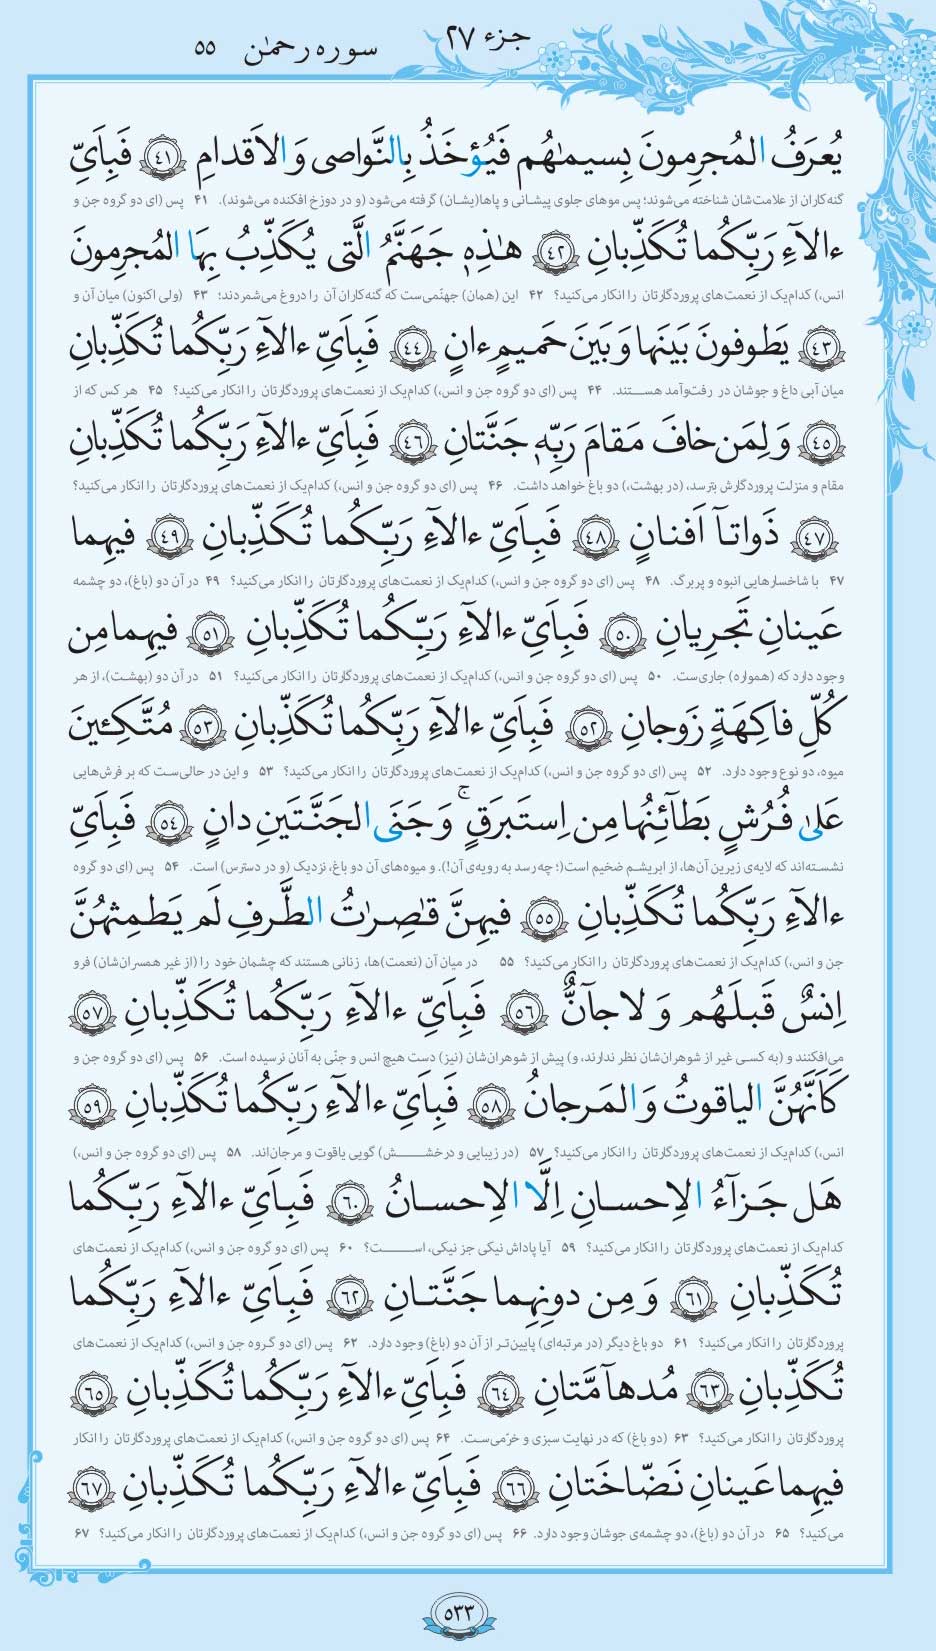 جزء ۲۷ سوره رحمٰن ۵۵
يُعرَفُ المُجرِمونَ بِسيمٰهُم فَيُؤخَذُ بِالنَّواصى وَ الاَقدامِ ﴿٤١﴾ فَبِاَىِّ
گنه‌کاران از علامت‌شان شناخته می‌شوند؛ پس موهای جلوی پیشانی و پاها(یشان) گرفته می‌شود (و در دوزخ افکنده می‌شوند). ۴۱ پس (ای دو گروه جن و
ءالآءِ رَبِّكُما تُكَذِّبانِ ﴿٤٢﴾ هٰذِهٖ جَهَنَّمُ الَّتى يُكَذِّبُ بِهَا المُجرِمونَ
انس،) کدام‌یک از نعمت‌های پروردگارتان را انکار می‌کنید؟ ۴۲ این (همان) جهنّمی‌ست که گنه‌کاران آن را دروغ می‌شمردند؛ ۴۳ (ولی اکنون) میان آن و
﴿٤٣﴾ يَطوفونَ بَينَها وَ بَينَ حَميمٍ ءانٍ ﴿٤٤﴾ فَبِاَىِّ ءالآءِ رَبِّكُما تُكَذِّبانِ
میان آبی داغ و جوشان در رفت‌وآمد هستند. ۴۴ پس (ای دو گروه جن و انس،) کدام‌یک از نعمت‌های پروردگارتان را انکار می‌کنید؟ ۴۵ هر کس که از
﴿٤٥﴾ وَ لِمَن خافَ مَقامَ رَبِّهٖ جَنَّتانِ ﴿٤٦﴾ فَبِاَىِّ ءالآءِ رَبِّكُما تُكَذِّبانِ
مقام و منزلت پروردگارش بترسد، (در بهشت،) دو باغ خواهد داشت. ۴۶ پس (ای دو گروه جن و انس،) کدام‌یک از نعمت‌های پروردگارتان را انکار می‌کنید؟
﴿٤٧﴾ ذَواتآ اَفنانٍ ﴿٤٨﴾ فَبِاَىِّ ءالآءِ رَبِّكُما تُكَذِّبانِ ﴿٤٩﴾ فيهِما
۴۷ با شاخسارهایی انبوه و پربرگ. ۴۸ پس (ای دو گروه جن و انس،) کدام‌یک از نعمت‌های پروردگارتان را انکار می‌کنید؟ ۴۹ در آن دو (باغ)، دو چشمه
عَينانِ تَجرِيانِ ﴿٥٠﴾ فَبِاَىِّ ءالآءِ رَبِّكُما تُكَذِّبانِ ﴿٥١﴾ فيهِما مِن
وجود دارد که (همواره) جاری‌ست. ۵۰ پس (ای دو گروه جن و انس،) کدام‌یک از نعمت‌های پروردگارتان را انکار می‌کنید؟ ۵۱ در آن دو (بهشت)، از هر
كُلِّ فاكِهَةٍ زَوجانِ ﴿٥٢﴾ فَبِاَىِّ ءالآءِ رَبِّكُما تُكَذِّبانِ ﴿٥٣﴾ مُتَّكِـئينَ
میوه، دو نوع وجود دارد. ۵۲ پس (ای دو گروه جن و انس،) کدام‌یک از نعمت‌های پروردگارتان را انکار می‌کنید؟ ۵۳ و این در حالی‌ست که بر فرش‌هایی
عَلىٰ فُرُشٍ بَطآئِنُها مِن اِستَبرَقٍ ۚ وَ جَنَى الجَنَّتَينِ دانٍ ﴿٥٤﴾ فَبِاَىِّ
نشسته‌اند که لایه‌ی زیرین آن‌ها، از ابریشم ضخیم است(؛ چه رسد به رویه‌ی آن!). و میوه‌های آن دو باغ، نزدیک (و در دسترس) است. ۵۴ پس (ای دو گروه
ءالآءِ رَبِّكُما تُكَذِّبانِ ﴿٥٥﴾ فيهِنَّ قاصِراتُ الطَّرفِ لَم يَطمِثهُنَّ
جن و انس،) کدام‌یک از نعمت‌های پروردگارتان را انکار می‌کنید؟ ۵۵ در میان آن (نعمت)ها، زنانی هستند که چشمان خود را (از غیر همسران‌شان) فرو
اِنسٌ قَبلَهُم وَ لا جآنٌّ ﴿٥٦﴾ فَبِاَىِّ ءالآءِ رَبِّكُما تُكَذِّبانِ ﴿٥٧﴾
می‌افکنند و (به کسی غیر از شوهران‌شان نظر ندارند، و) پیش از شوهران‌شان (نیز) دست هیچ انس و جنّی به آنان نرسیده است. ۵۶ پس (ای دو گروه جن و
كَاَنَّهُنَّ الياقوتُ وَ المَرجانُ ﴿٥٨﴾ فَبِاَىِّ ءالآءِ رَبِّكُما تُكَذِّبانِ ﴿٥٩﴾
انس،) کدام‌یک از نعمت‌های پروردگارتان را انکار می‌کنید؟ ۵۷ (در زیبایی و درخشش) گویی یاقوت و مرجان‌اند. ۵۸ پس (ای دو گروه جن و انس،)
هَل جَزآءُ الاِحسانِ اِلَّا الاِحسانُ ﴿٦٠﴾ فَبِاَىِّ ءالآءِ رَبِّكُما
کدام‌یک از نعمت‌های پروردگارتان را انکار می‌کنید؟ ۵۹ آیا پاداش نیکی جز نیکی، است؟ ۶۰ پس (ای دو گروه جن و انس،) کدام‌یک از نعمت‌های
تُكَذِّبانِ ﴿٦١﴾ وَ مِن دونِهِما جَنَّتانِ ﴿٦٢﴾ فَبِاَىِّ ءالآءِ رَبِّكُما
پروردگارتان را انکار می‌کنید؟ ۶۱ دو باغ دیگر (در مرتبه‌ای) پایین‌تر از آن دو (باغ) وجود دارد. ۶۲ پس (ای دو گروه جن و انس،) کدام‌یک از نعمت‌های
تُكَذِّبانِ ﴿٦٣﴾ مُدهآمَّتانِ ﴿٦٤﴾ فَبِاَىِّ ءالآءِ رَبِّكُما تُكَذِّبانِ ﴿٦٥﴾
پروردگارتان را انکار می‌کنید؟ ۶۳ (دو باغ) که در نهایت سبزی و خرّمی‌ست. ۶۴ پس (ای دو گروه جن و انس،) کدام‌یک از نعمت‌های پروردگارتان را انکار
فيهِما عَينانِ نَضّاخَتانِ ﴿٦٦﴾ فَبِاَىِّ ءالآءِ رَبِّكُما تُكَذِّبانِ ﴿٦٧﴾
می‌کنید؟ ۶۵ در آن دو (باغ)، دو چشمه‌ی جوشان وجود دارد. ۶۶ پس (ای دو گروه جن و انس،) کدام‌یک از نعمت‌های پروردگارتان را انکار می‌کنید؟ ۶۷
۵۳۳